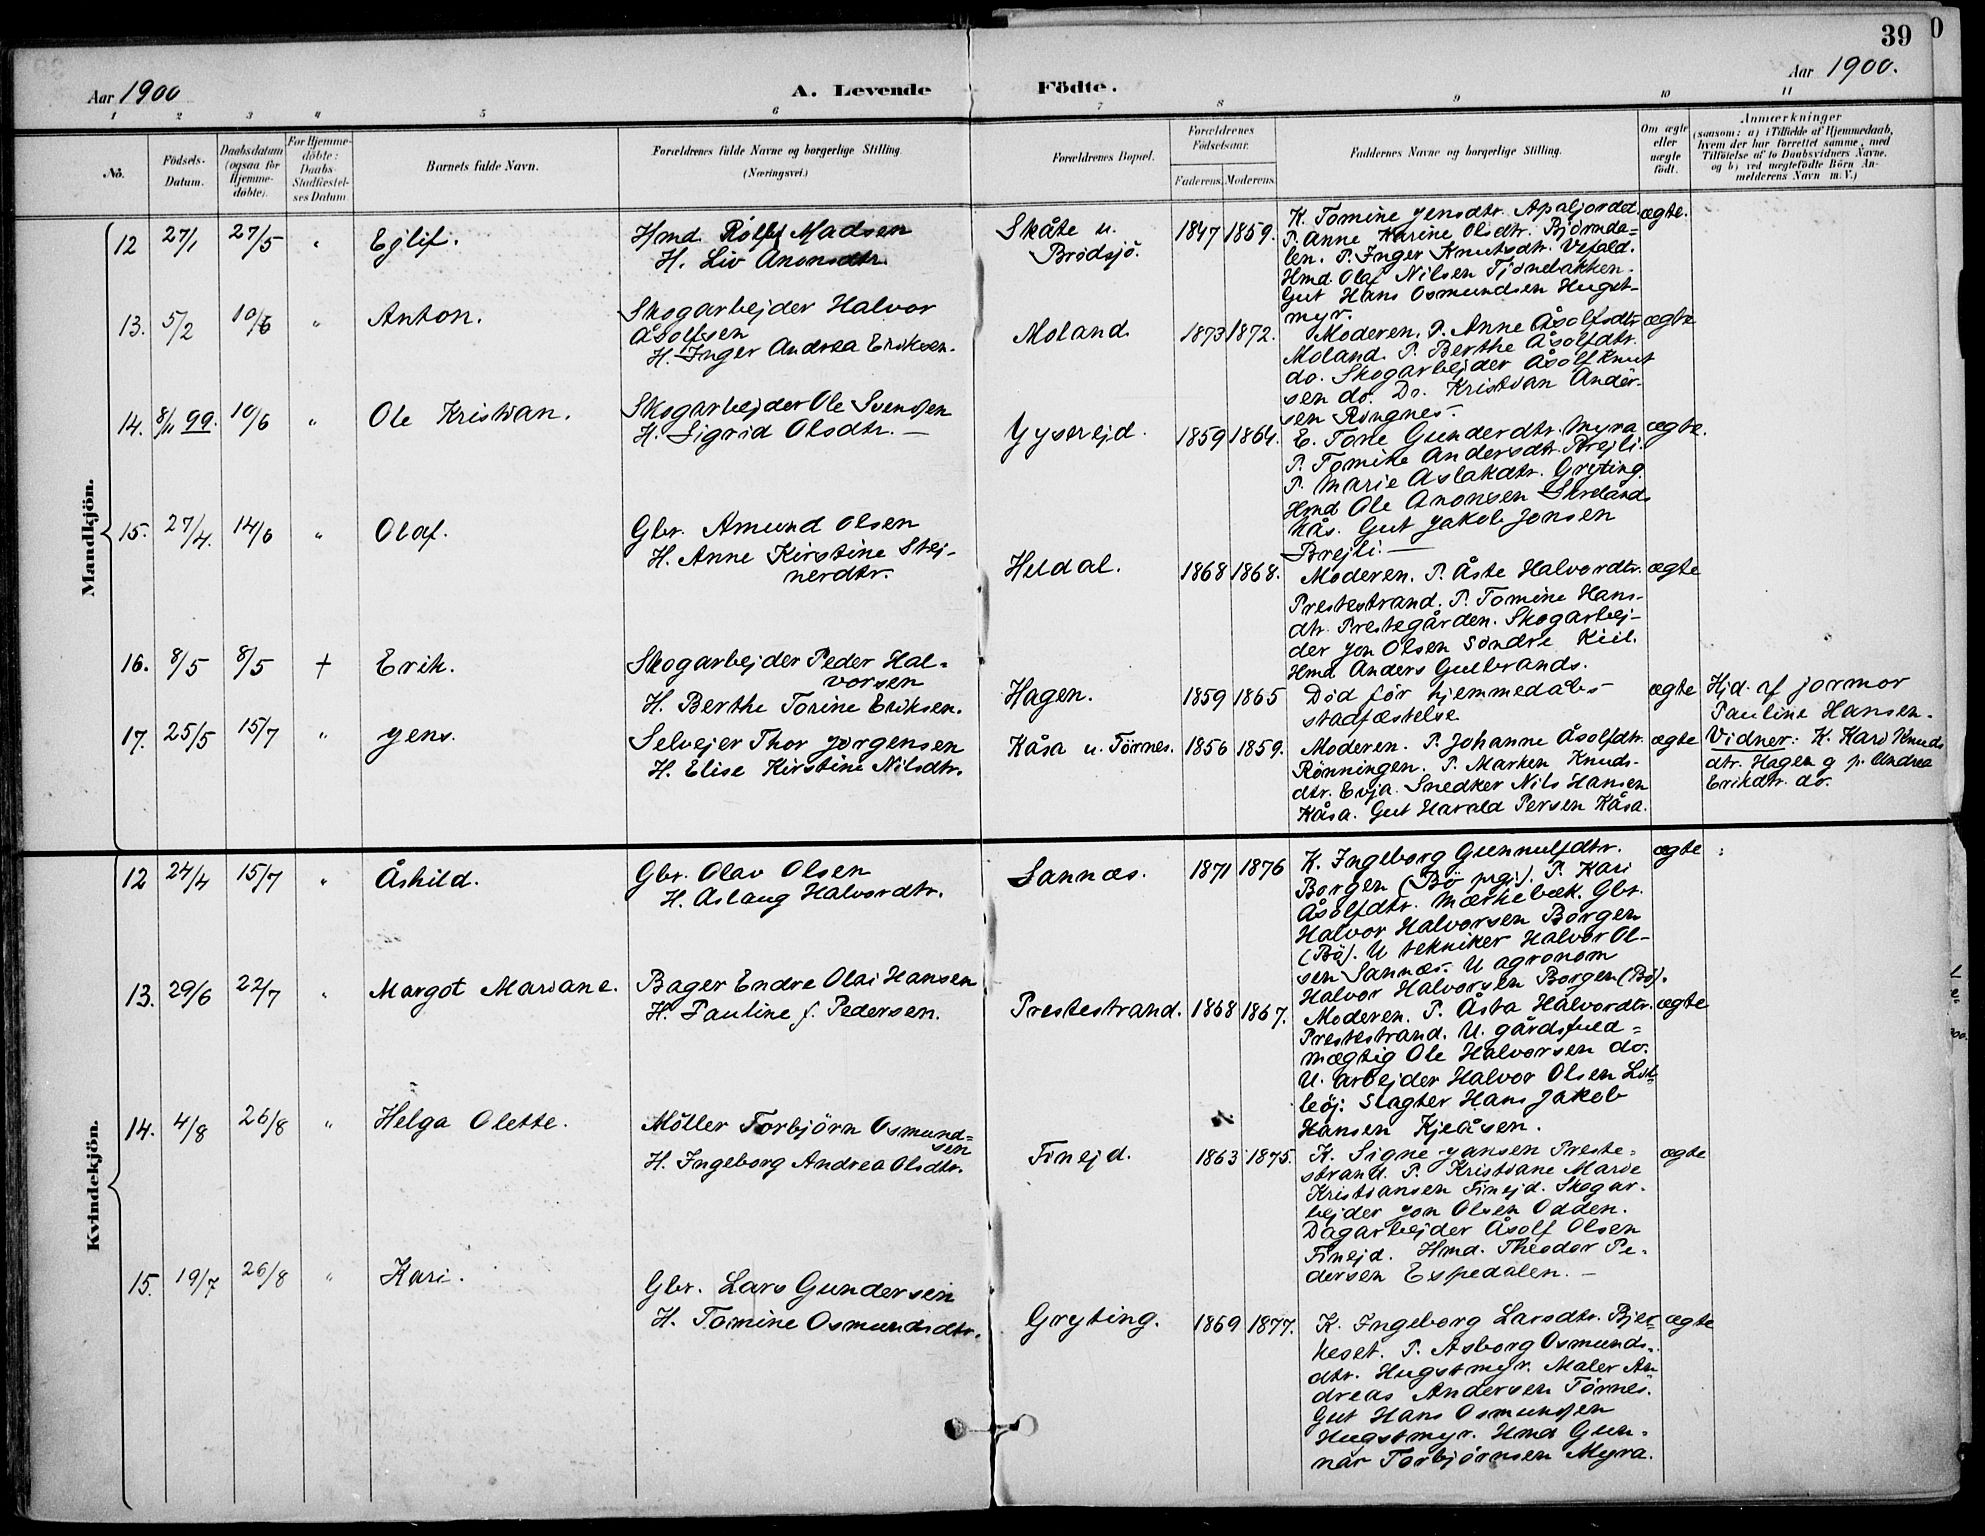 39
Aar 1900
A. Levende Födte.
Aar 1900.
1 2 3 4 5 6 7 8 9 10 11
No.
Födsels-
Datum.
Daabsdatum
(ogsaa for
Hjemme-
döbte).
For Hjemme-
döbte:
Daabs-
Stadfæstel-
ses Datum
Barnets fulde Navn.
Forældrenes fulde Navne og borgerlige Stilling.
(Næringsvei.)
Forældrenes Bopæl.
Forældrenes
Födselsaar.
Faderens. Moderens.
Faddernes Navne og borgerlige Stilling.
Om ægte
eller
uægte
født.
Anmærkninger
(saasom: a) i Tilfælde af Hjemmedaab,
hvem der har forrettet samme, med
Tilföielse af to Daabsvidners Navne.
og b) ved uægtefödte Börn An-
melderens Navn m. V.)
Mandkjön.
12 27/1 27/5 " Ejlif.
Hmd. Rolf Madsen
H. Liv Anonsdtr.
Skåte u.
Brødsjø.
1847 1859.
K. Tomine Jensdtr. Apaljordet
P. Anne Karine Olsdtr. Bjørnda-
len. P. Inger Knutsdtr. Vefald.
Hmd Olaf Nilsen Tjøndakken.
Gut Hans Osmundsen Hugst-
myr.
ægte.
13. 5/2 10/6 " Anton.
Skogarbejder Halvor
Åsolfssen
H. Inger Andrea Eriksen.
Moland. 1873 1872.
Moderen. P. Anne Åsolfsdtr
Moland. P. Berthe Åsolfdtr.
do. Skogarbejder Åsolf Knut
sen do. Do. Kristian Ander-
sen Ringnes.
ægte
14. 8/11 99. 10/6 " Ole Kristian.
Skogarbejder Ole Svensen
H. Sigrid Olsdtr. —
1859 1864.
E. Tone Gunderdtr. Myra
P. Tomine Andersdtr. Brejli.
P. Marie Aslakdtr. Gryting.
Hmd Ole Anonsen Skreland
Nås. Gut Jakob Jonsen
Brejli. —
ægte.
15. 27/4. 14/6 " Olaf.
Gbr. Amund Olsen
H. Anne Kirstine Stej-
nerdtr.
Heldal. 1868 1868.
Moderen. P. Åste Halvordtr.
Prestestrand. P. Tomine Hans-
dtr. Prestegården. Skogarbej-
der Jon Olsen Søndre Kiil.
Hmd Anders Gulbrands.
ægte
16. 8/5 8/5 + Erik.
Skogarbejder Peder Hal-
vorsen
H. Berthe Torine Eriksen.
Hagen. 1859 1865
Død før hjemmedåbs-
stadfæstelse
ægte
Hjd. af jormor
Pauline Hansen.
Vidner: K. Kari Knuds
dtr. Hagen g p. Andrea
Erikdtr. do.
17. 25/5 15/7 " Jens.
Selvejer Thor Jørgensen
H. Elise Kirstine Nilsdtr.
Kåsa u. Tørnes. 1856 1859.
Moderen. P. Johanne Åsolfdtr.
Rønningen. P. Marken Knuds-
dtr. Evja. Snedker Nils Hansen
Kåsa. Gut Harald Persen Kåsa.
ægte
Kvindekjön.
12 24/4 15/7 " Åshild.
Gbr. Olav Olsen
H. Aslaug Halvordtr.
Sannæs. 1871 1876
K. Ingeborg Gunnulfdtr.
Borgen (Bø prgj). P. Kari
Åsolfdtr. Mærkebæk. Gbr.
Halvor Halvorsen Borgen
(Bø). U tekniker Halvor Ol-
sen Sannæs. U agronom
Halvor Halvorsen Borgen (Bø).
ægte
13. 29/6 22/7 " Margot Mariane.
Bager Endre Olai Hansen
H. Pauline f. Pedersen.
Prestestrand. 1868 1867.
Moderen. P. Åsta Halvordtr.
Prestestrand. U. gårdsfuld-
mægtig Ole Halvorsen do.
U. arbejder Halvor Olsen List-
leøj: Slagter Hans Jakob
Hansen Kjeåsen.
ægte
14. 4/8 26/8 " Helga Olette.
Møller Torbjørn Osmund-
sen
H. Ingeborg Andrea Olsdtr.
Finejd. 1863 1875.
K. Signe Jansen Preste-
strand. P. Kristiane Marie
Kristiansen Finejd. Skogar-
bejder Jon Olsen Odden.
Dagarbejder Åsolf Olsen
Finejd. Hmd. Theodor Pe-
dersen Espedalen. —
ægte
15. 19/7 26/8 " Kari.
Gbr. Lars Gundersen
H. Tomine Osmundsdtr.
Gryting. 1869 1877.
K. Ingeborg Larsdtr. Bjer-
keset. P. Asborg Osmunds-
dtr. Hugstmyr. Maler An
dreas Andersen Tørnes.
Gut Hans Osmundsen
Hugstmyr. Hmd Gun-
nar Torbjørnsen Myra.
ægte